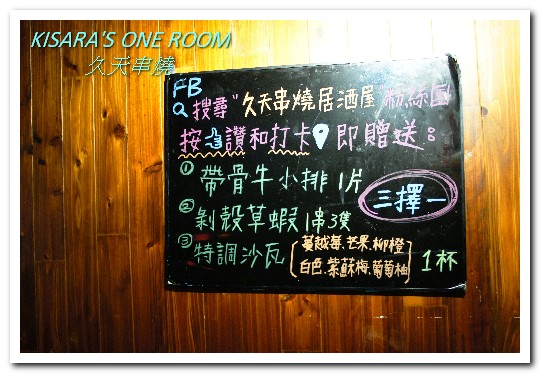 KISARA'S ONE ROOM
久天串燒
FB
搜尋"久天串燒居酒屋"粉絲團
按讚和打卡即贈送:
① 帶骨牛小排1片
三擇一
② 剝殼草蝦1串3隻
③ 特調沙瓦
蔓越莓.芒果.柳橙
白色.紫蘇梅.葡萄柚
1杯